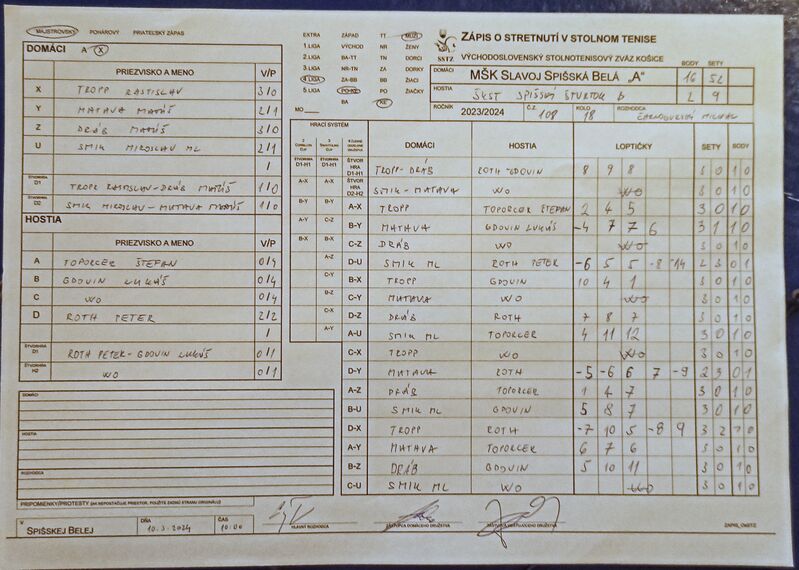 MAJSTROVSKÝ POHÁROVÝ PRIATEĽSKÝ ZÁPAS
DOMÁCI A X
PRIEZVISKO A MENO V/P
X TROPP RASTISLAV 3/0
Y MATAVA MATÚŠ 2/1
Z DRÁB MATÚŠ 3/0
U SMIK MIROSLAV ML 2/1
/
ŠTVORHRA D1 TROPP RASTISLAV-DRÁB MATÚŠ 1/0
ŠTVORHRA D2 SMIK MIROSLAV-MATAVA MATÚŠ 1/0
HOSTIA
PRIEZVISKO A MENO V/P
A TOPORCER ŠTEFAN 0/4
B GDOVIN LUKÁŠ 0/4
C WO 0/4
D ROTH PETER 2/2
/
ŠTVORHRA D1 ROTH PETER-GDOVIN LUKÁŠ 0/1
ŠTVORHRA H2 WO 0/1
DOMÁCI
HOSTIA
ROZHODCA
PRIPOMIENKY/PROTESTY (AK NEPOSTAČUJE PRIESTOR, POUŽITE ZADNÚ STRANU ORIGINÁLU)
EXTRA ZÁPAD TT MUŽI
1.LIGA VÝCHOD NR ŽENY
2.LIGA BA-TT TN DORCI
3.LIGA NR-TN ZA DORKY
4.LIGA ZA-BB BB ŽIACI
5.LIGA PO-KE PO ŽIAČKY
BA KE
MO
SSTZ
ZÁPIS O STRETNUTÍ V STOLNOM TENISE
VÝCHODOSLOVENSKÝ STOLNOTENISOVÝ ZVÄZ KOŠICE
BODY SETY
DOMÁCI MŠK SLAVOJ SPIŠSKÁ BELÁ „A" 16 52
HOSTIA ŠKST SPIŠSKÝ ŠTVRTOK B 2 9
ROČNÍK 2023/2024 Č.Z. 108 KOLO 18 ROZHODCA
HRACÍ SYSTÉM
DOMÁCI HOSTIA LOPTIČKY SETY BODY
ŠTVORHRA D1-H1 D1-H1 ŠTVORHRA D1-H1 TROPP-DRÁB ROTH-GDOVIN 8 9 8 3 0 1 0
A-X A-X ŠTVORHRA D2-H2 SMIK-MATAVA WO WO 3 0 1 0
B-Y B-Y A-X TROPP TOPORCER ŠTEFAN 2 4 5 3 0 1 0
A-Y C-Z B-Y MATAVA GDOVIN LUKÁŠ -4 7 7 6 3 1 1 0
B-X B-X C-Z DRÁB WO WO 3 0 1 0
A-Z D-U SMIK ML ROTH PETER -6 5 5 -8 -14 2 3 0 1
C-Y B-X TROPP GDOVIN 10 4 1 3 0 1 0
B-Z C-Y MATAVA WO WO 3 0 1 0
C-X D-Z DRÁB ROTH 7 8 7 3 0 1 0
A-Y A-U SMIK ML TOPORCER 4 11 12 3 0 1 0
C-X TROPP WO WO 3 0 1 0
D-Y MATAVA ROTH -5 -6 6 7 -9 2 3 0 1
A-Z DRÁB TOPORCER 1 4 7 3 0 1 0
B-U SMIK ML GDOVIN 5 8 7 3 0 1 0
D-X TROPP ROTH -7 10 5 -8 9 3 2 1 0
A-Y MATAVA TOPORCER 6 7 6 3 0 1 0
B-Z DRÁB GDOVIN 5 10 11 3 0 1 0
C-U SMIK ML WO WO 3 0 1 0
V SPIŠSKEJ BELEJ DŇA 10.3.2024 ČAS 10:00 HLAVNÝ ROZHODCA ZÁSTUPCA DOMÁCEHO DRUŽSTVA ZÁSTUPCA HOSŤUJÚCEHO DRUŽSTVA ZAPIS_VKSTZ